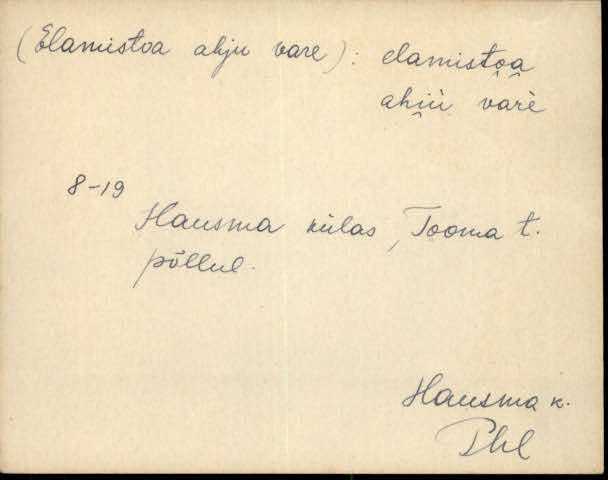 (Elamistoa ahju vare): elamisto̭a̭
ahi̭ù varè
8-19
Hausma külas, Tooma t.
põllul.
Hausma k.
Phl